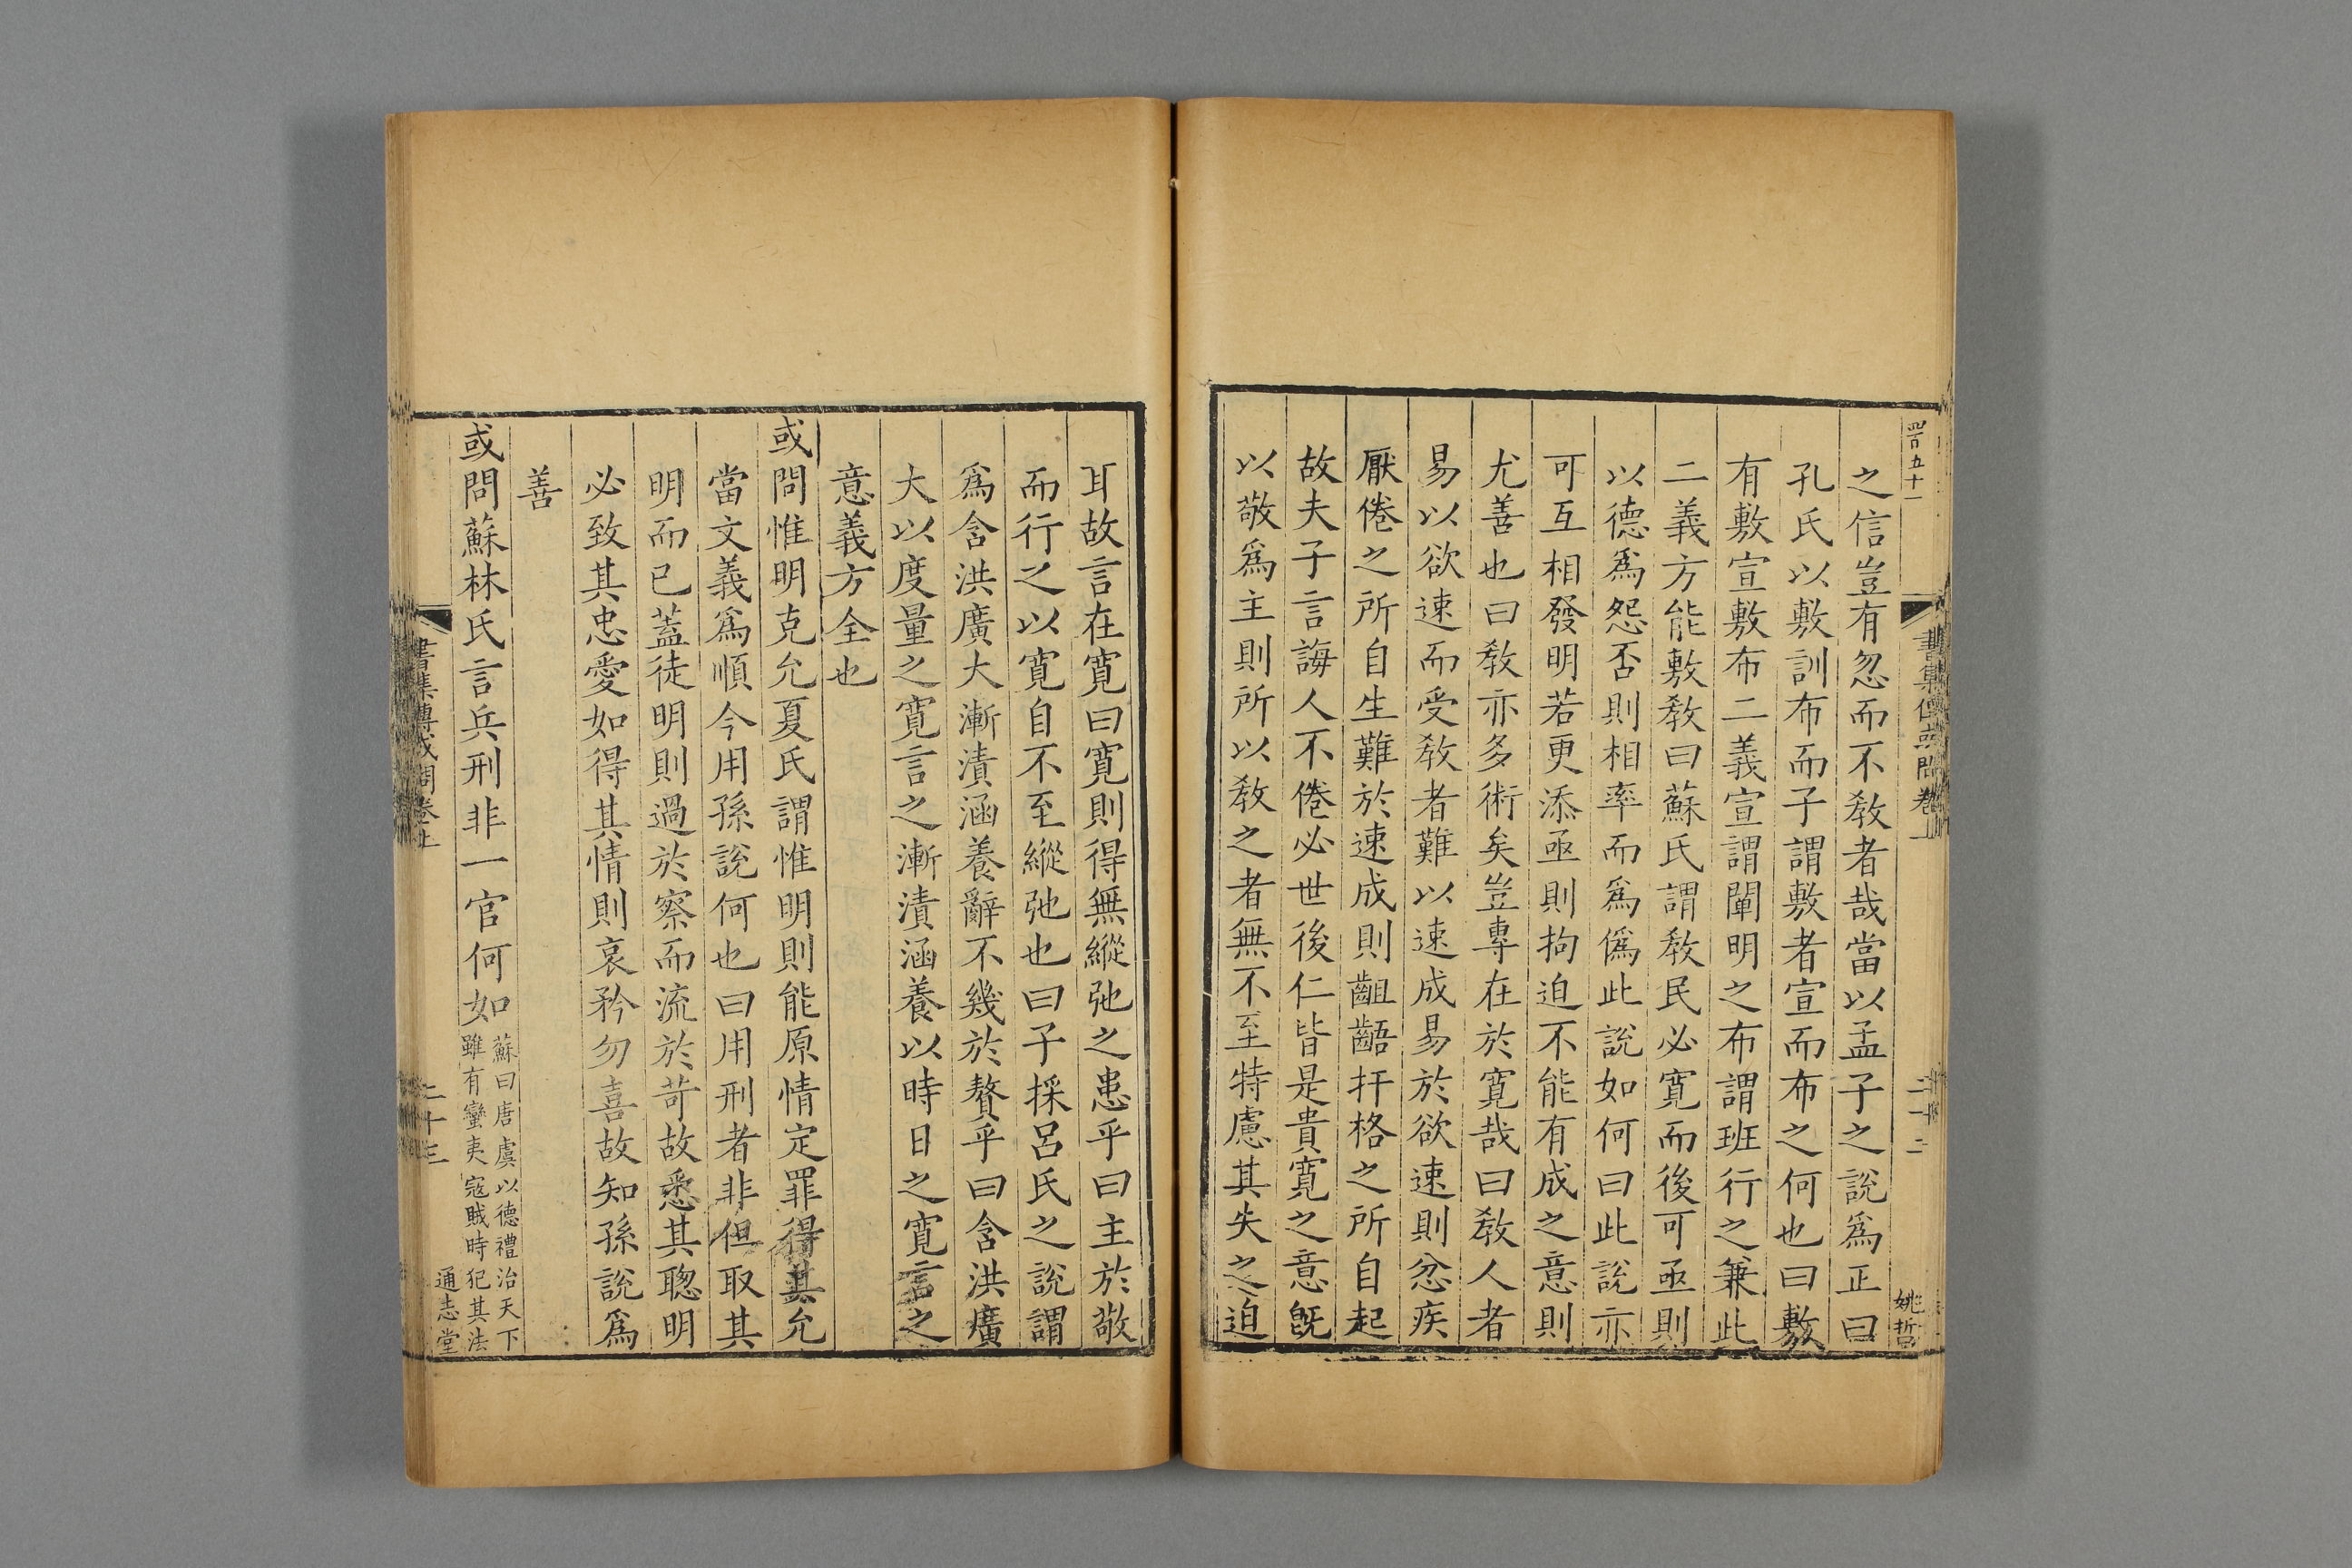 之信豈有忽而不敎者哉當以孟子之說爲正曰
孔氏以敷訓布而子謂敷者宣而布之何也曰敷
有敷宣敷布二義宣謂闡明之布謂班行之兼此
二義方能敷敎曰蘇氏謂敎民必寬而後可亟則
以德爲怨否則相率而爲僞此說如何曰此說亦
可互相發明若更添亟則拘迫不能有成之意則
尤善也曰敎亦多術矣豈專在於寬哉曰敎人者
易以欲速而受敎者難以速成易於欲速則忿疾
厭倦之所自生難於速成則齟齬扞格之所自起
故夫子言誨人不倦必世後仁皆是貴寬之意旣
以敬爲主則所以敎之者無不至特慮其失之迫
書集傳或問卷上
二十二
姚哲
耳故言在寬曰寬則得無縱弛之患乎曰主於敬
而行之以寬自不至縱弛也曰子採呂氏之說謂
爲含洪廣大漸漬涵養辭不幾於贅乎曰含洪廣
大以度量之寬言之漸漬涵養以時日之寬言之
意義方全也
或問惟明克允夏氏謂惟明則能原情定罪得其允
當文義爲順今用孫說何也曰用刑者非但取其
明而已蓋徒明則過於察而流於苛故悉其聰明
必致其忠愛如得其情則哀矜勿喜故知孫說爲
善
或問蘇林氏言兵刑非一官何如
蘇曰唐虞以德禮治天下
雖有蠻夷寇賊時犯其法
書集傳或問卷上
二十三
通志堂